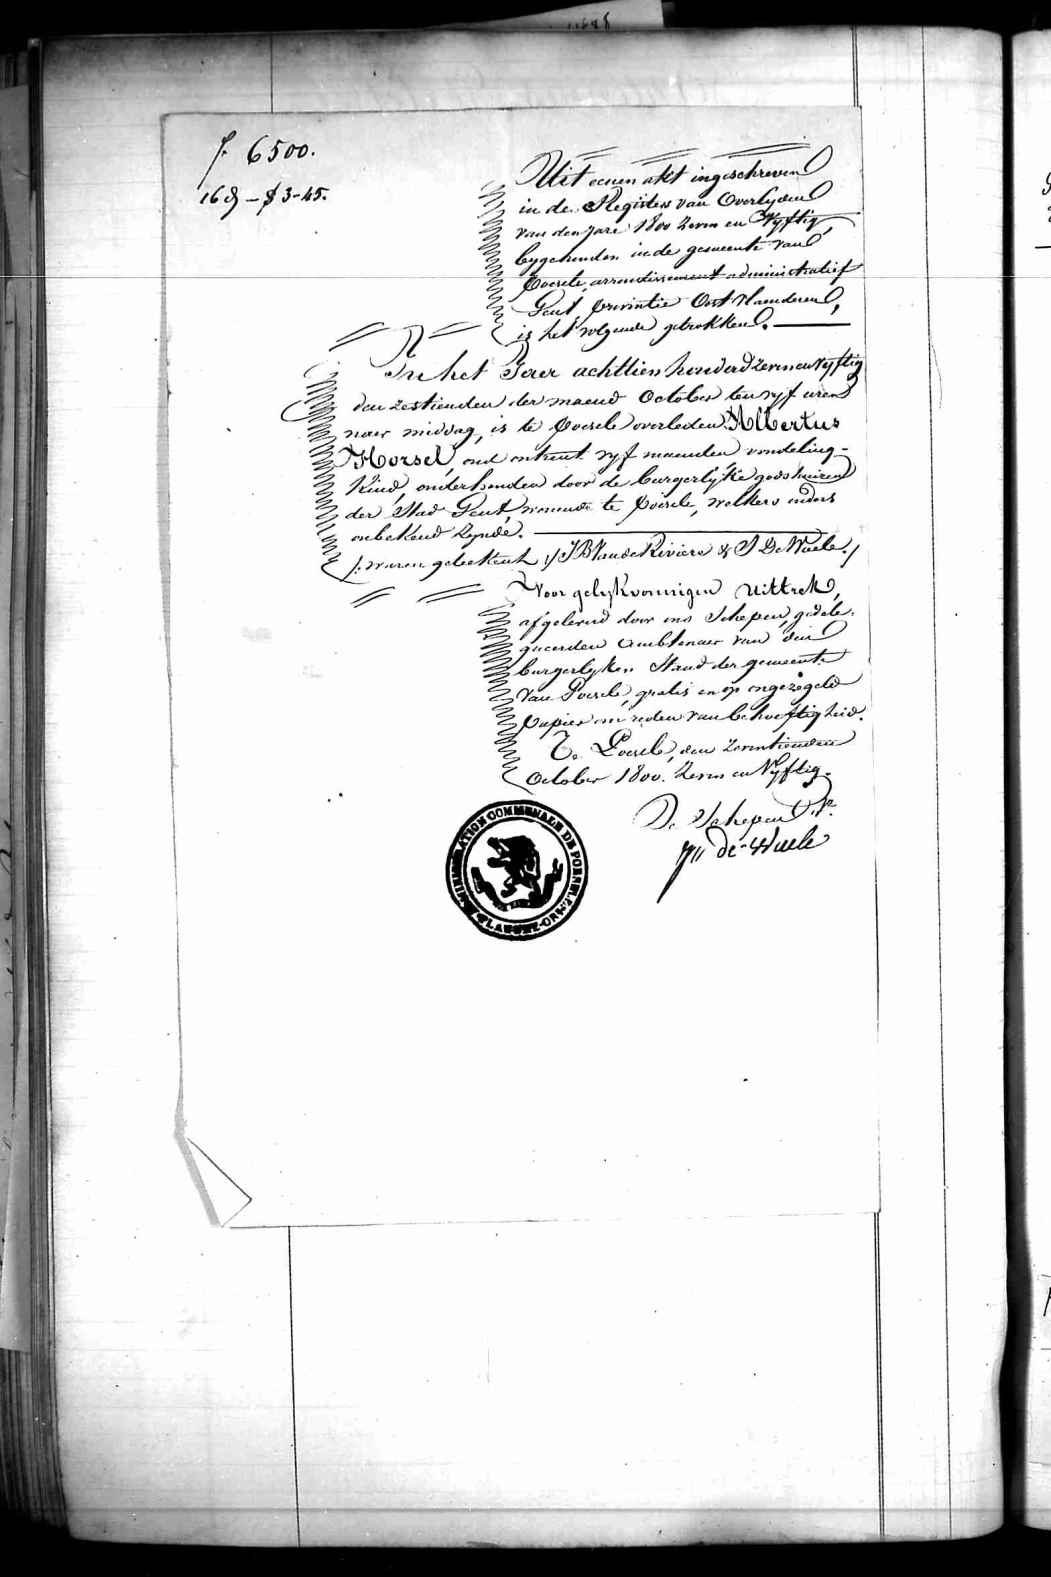 f. 6500.
Uit eenen akt ingeschreven
in de Registers van Overlyden
van den Jare 1800 zeven en Vyftig,
bygehouden in de gemeente van
Poesele, arrondissement administratief
Gent, provintie Oost Vlaenderen,
is het volgende getrokken.
In het Jaer achttien honderd zeven en vyftig
den zestienden der maend October ten vyf uren
naer middag, is te Poesele overleden Albertus
Horsel, oud ontrent vyf maenden vondeling-
kind, onderhouden door de burgerlyke godshuizen
der Stad Gent, wonende te Poesele, welkers ouders
onbekend zynde.
/: waren geteekent :/ J B Vande Riviere & J De Waele./
Voor gelykvormigen uittrek,
afgeleverd door ons Schepen, gedele-
gueerden Ambtenaer van den
burgerlyken Stand der gemeente
van Poesele, gratis en op ongezegeld
Papier om reden van behoeftigheid.
Te Poesele, den zeventienden
October 1800. zeven en Vyftig.
De Schepen
de Waele
ADMINISTRATION COMMUNALE DE POESELE
FLANDRE-ORIE